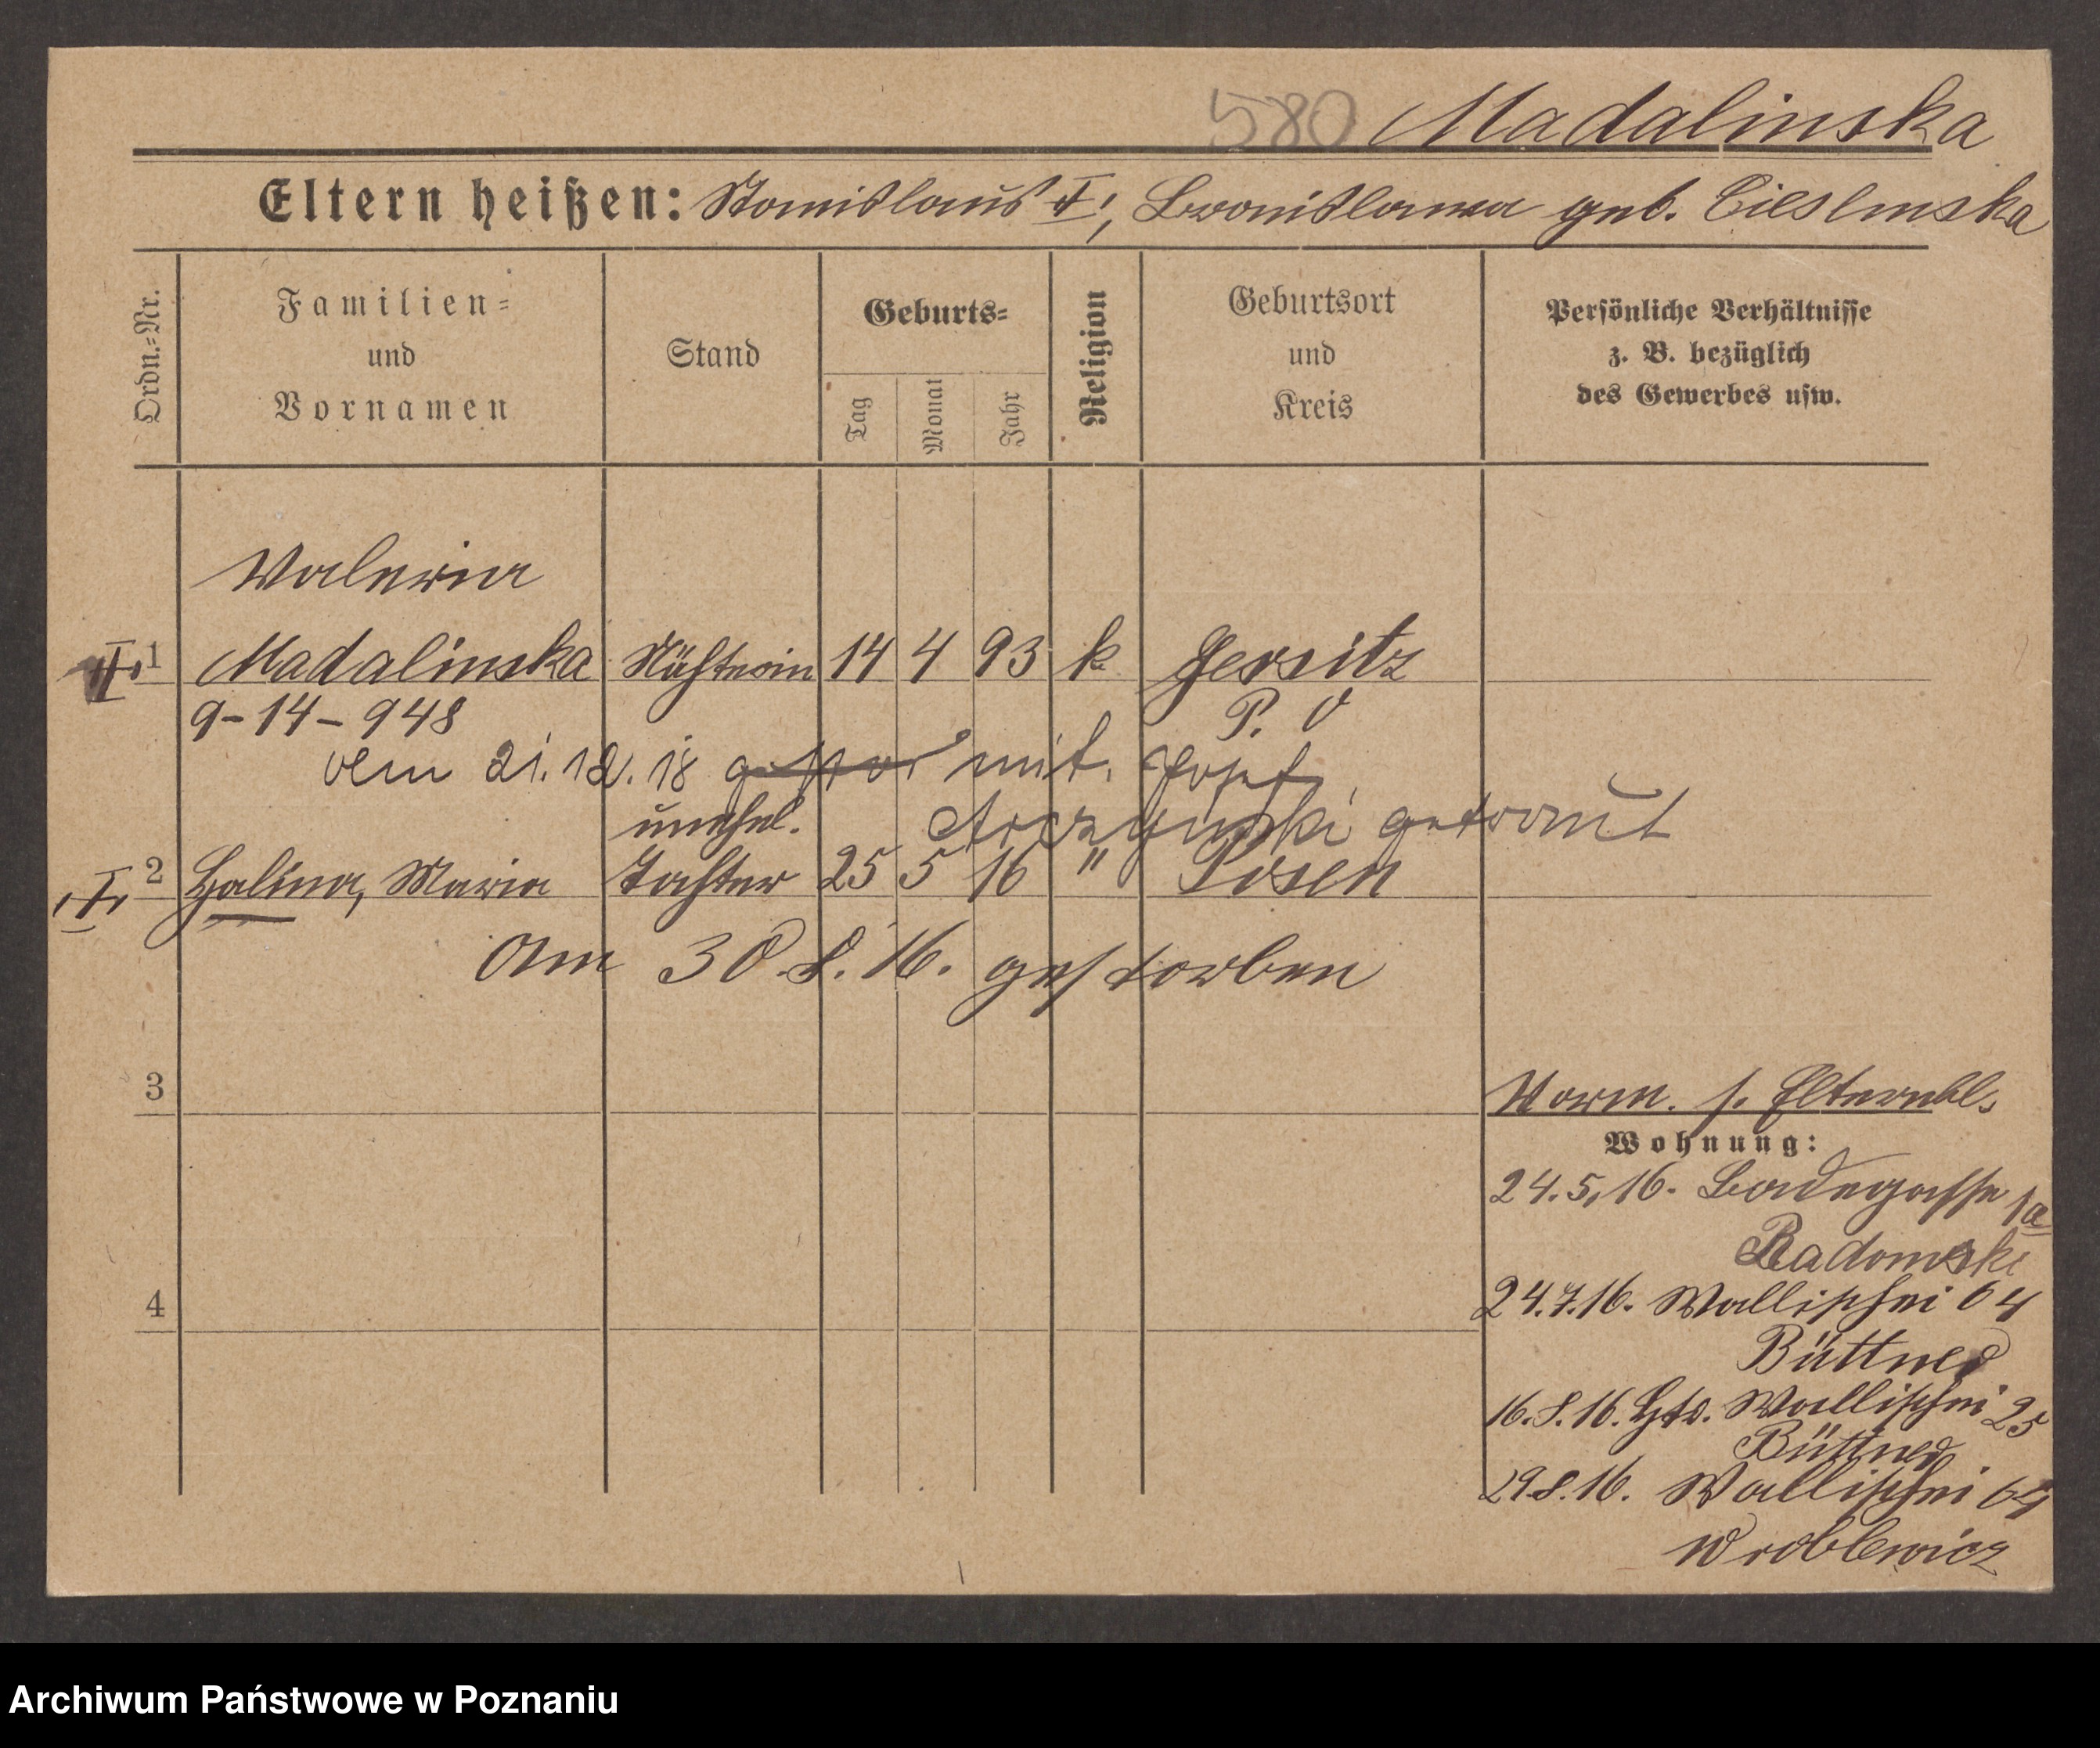 580 Madalinska
Eltern heißen: Stanislaus †, Bronislawa geb. Cieslinska
Ordn.-Nr.
Familien-
und
Vornamen
Stand
Geburts-
Tag
Monat
Jahr
Religion
Geburtsort
und
Kreis
Persönliche Verhältnisse
z. B. bezüglich
des Gewerbes usw.
Valeria
1 Madalinska Näherin 14 4 93 k Jersitz
9-14-948 P. O
21.12.18 mit Josef
unehel. getraut
2 Halina, Maria Tochter 25 5 16 " Posen
Am 30.8.16. gestorben
3
Vorm. s. Elternbl.
Wohnung:
24.5.16. Badegasse 1a
Radomski
4
24.7.16. Wallischei 64
Büttner
16.8.16. Wallischei 25
Büttner
29.8.16. Wallischei 64
Wroblewicz
Archiwum Państwowe w Poznaniu